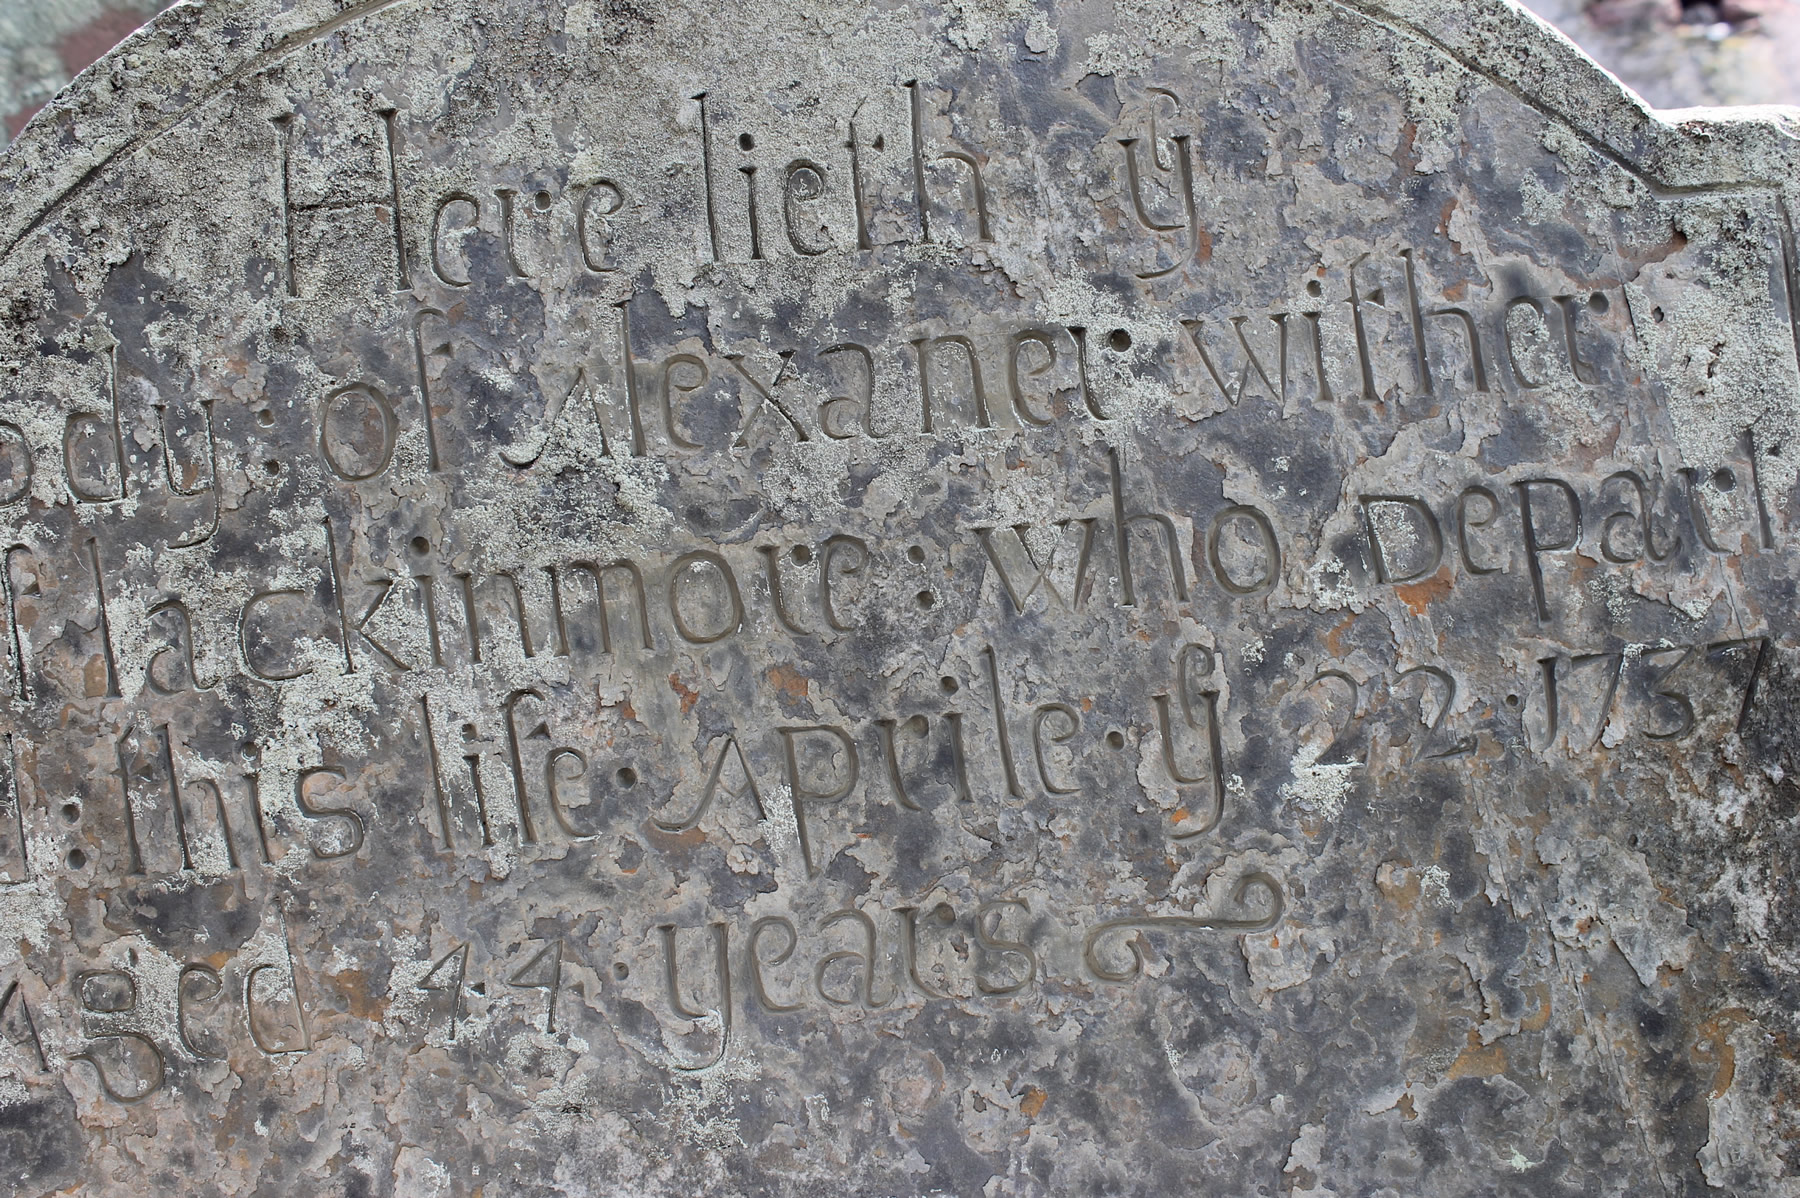 Here lieth yᵉ
ody: of Alexaner wither
flackinmore: who Depart
d: this life · Aprile · yᵉ 22 · 1737
Aged 44 · years